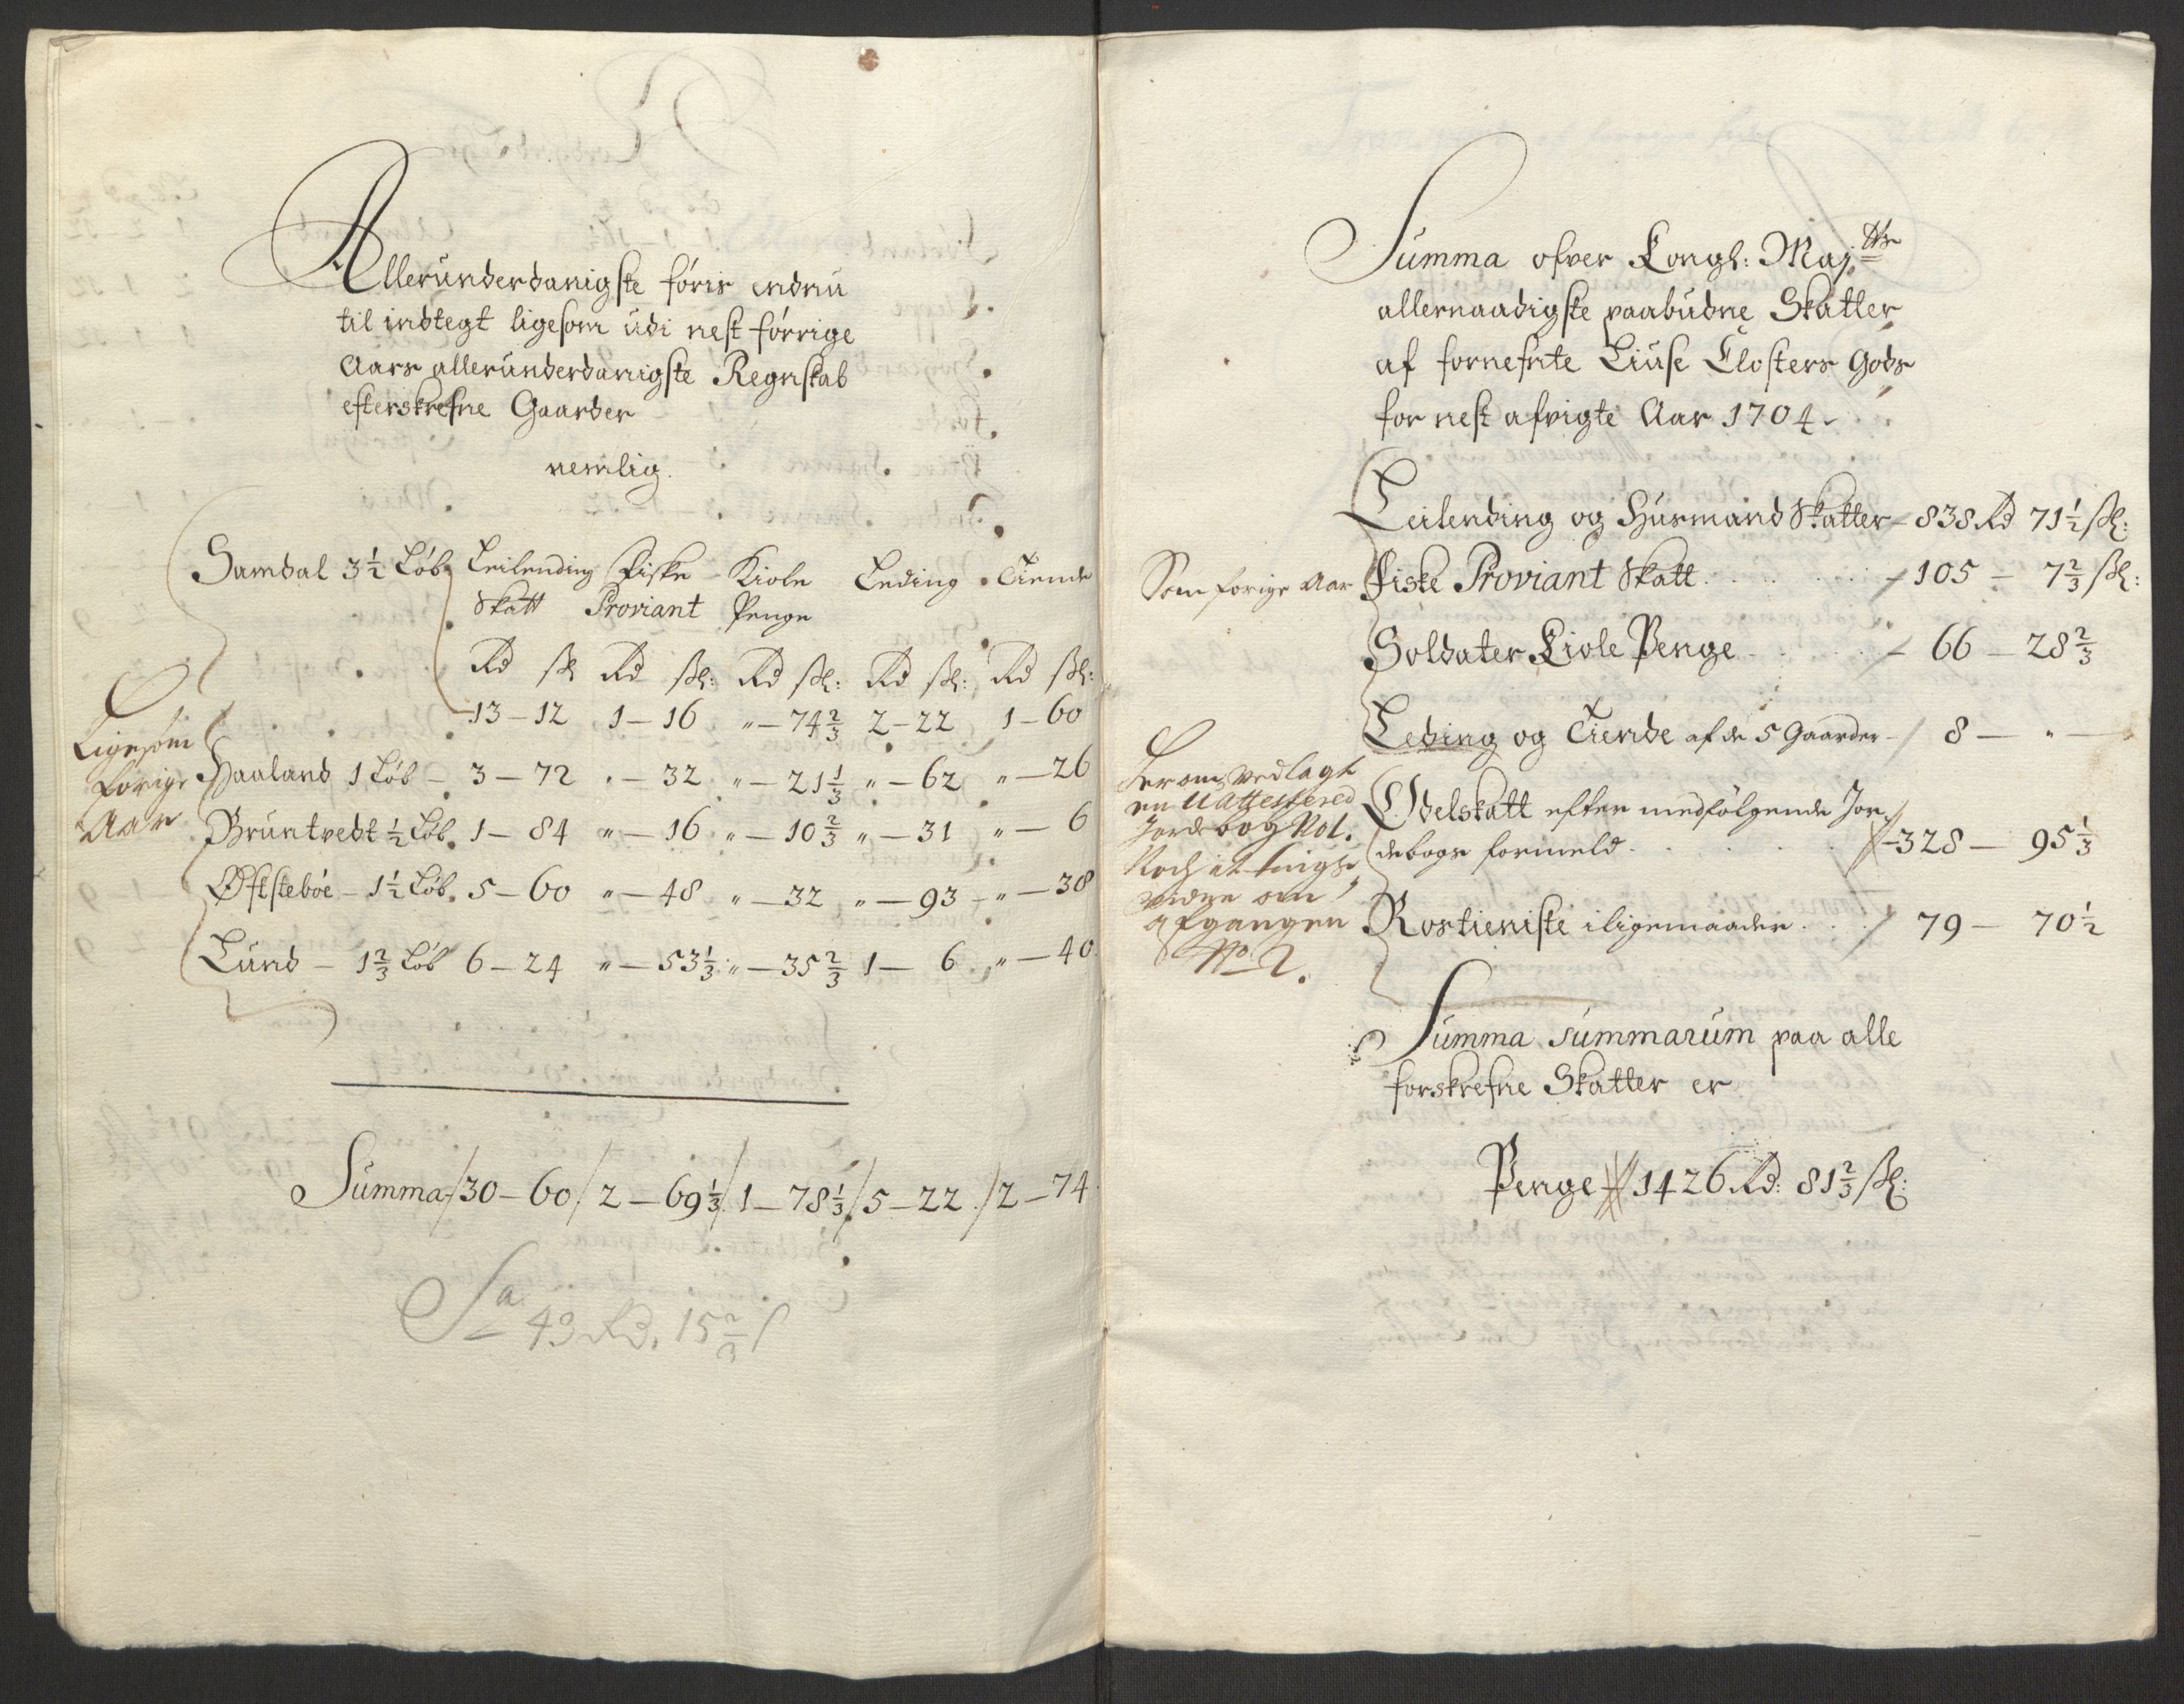 Allerunderdanigste föris endnu
til indtegt ligesom udi nest förrige
Aars allerunderdanigste Regnskab
efterskrefne Gaarder
nemlig.
Samdal 3½ Löb, Leilending Fiske Kiole Leding Tiende
Skatt Proviant Penge
Rd ẞl Rd ẞl: Rd ẞl: Rd ẞl: Rd ẞl:
13 – 12 1 – 16 „ – 74⅔ 2 – 22 1 – 60
Ligesom
forige
Aar
Haaland 1 Löb – 3 – 72 „ – 32 „ – 21⅓ „ – 62 „ – 26
Bruntvedt ½ Löb. 1 – 84 „ – 16 „ – 10⅔ „ – 31 „ – 6
Øfstebóe – 1½ Löb. 5 – 60 „ – 48 „ – 32 „ – 93 – „ – 38
Lund – 1⅔ Löb 6 – 24 „ – 53⅓ „ – 35⅔ 1 – 6 „ – 40
Summa / 30 – 60 / 2 – 69⅓ / 1 – 78⅓ / 5 – 22 / 2 – 74
Sa 43 Rd. 15⅔ ẞ
Summa ofver Kongl: Majtts
allernaadigste paabudne Skatter
af fornefnte Liuse Closters Gods
for nest afvigte Aar 1704.
Leilending og Husmand Skatter – 838 Rd 71½ ẞl:
Som forige Aar
Fiske Proviant Skatt . . . . – 105 – 7⅔ ẞl:
Soldater Kiole Penge . . . – 66 – 28⅔
Leding og Tiende af de 5 Gaarder – 8 – „ –
Herom vedlagt
en Uattestered
Jordebog No 1.
Noch et tings
vidne om
afgangen
No 2.
Odelskatt efter medfölgende Jor-
debogs formeld . . . . – 328 – 95⅓
Rostieniste iligemaader . . . 79 – 70½
Summa summarum paa alle
forskrefne Skatter er
Penge 1426 Rd: 81⅔ ẞl: